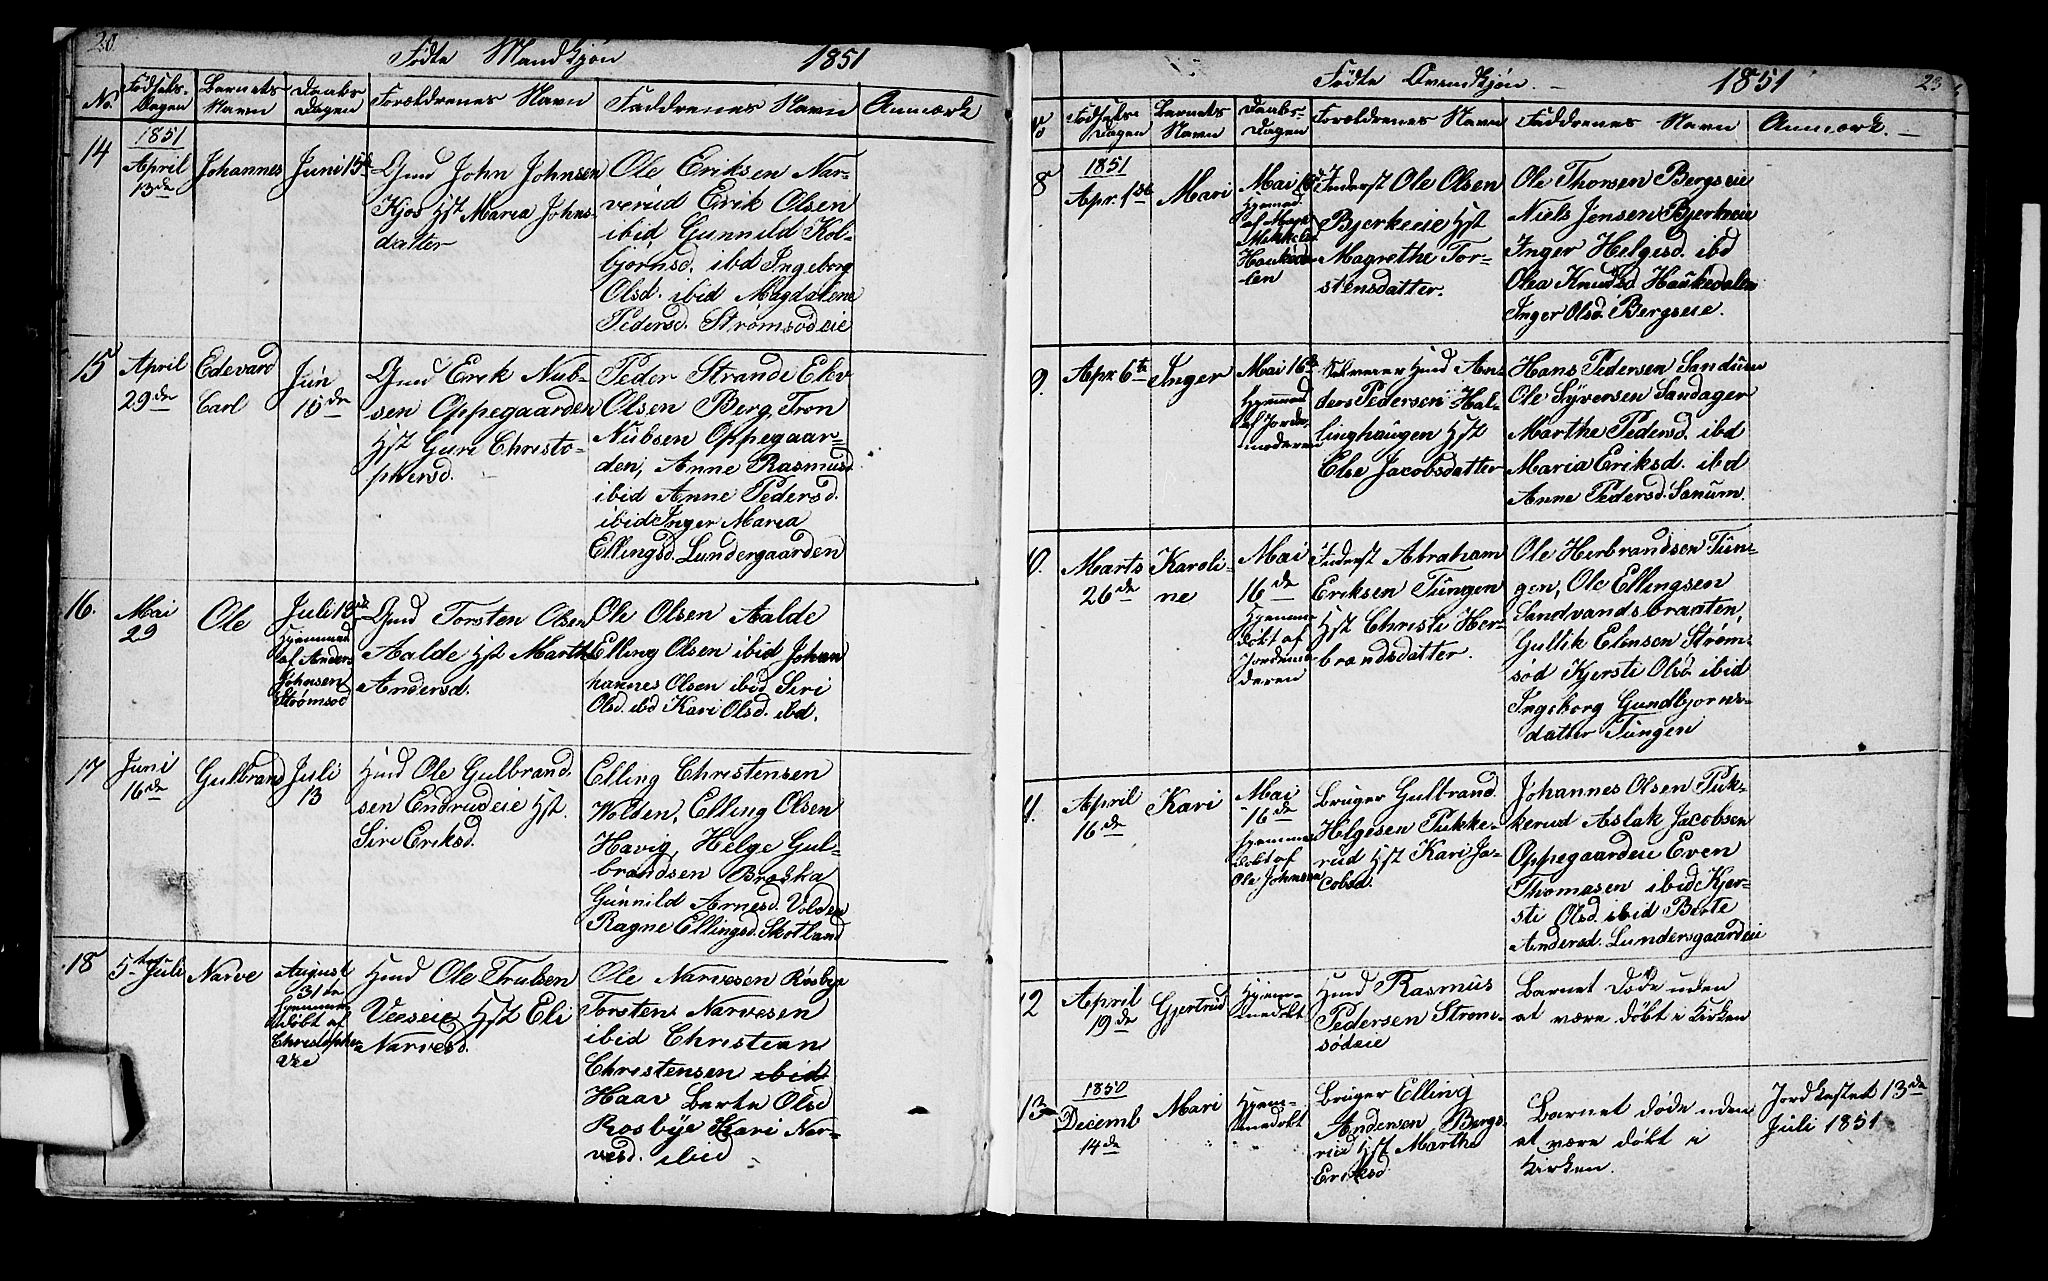 20.
Födte Mandkjön 1851
No. Födsels-Dagen Barnets Navn Daabs Dagen Forældrenes Navn Faddrenes Navn Anmærk
14 1851 April 13de Johannes Juni 15de
Gmd John Johnsen
Kjos Hst Maria Johns-
datter
Ole Eriksen Nar-
verud Erik Olsen
ibid Gunnild Kol-
bjørnsd. ibd Ingeborg
Olsd. ibid Magdalene
Pedersd. Strømsødeie
15 April 29de Edevard Carl Jun 15de
Gmd Erik Nub-
sen Oppegaarden
Hst Guri Christo-
phersd.
Peder Strande Elev
Olsen Berg Tron
Nubsen Oppegaar-
den, Anne Rasmusd
ibid Anne Pedersd.
ibid Inger Maria
Ellingsd. Lundergaarden
16. Mai 29 Ole Juli 13de
Hjemmed
af Anders
Johnsen
Strømsod
Gmd Torsten Olsen
Aalde Hst Marthe
Andersd.
Ole Olsen Aalde
Elling Olsen ibid Johan
hannes Olsen ibid Siri
Olsd. ibd Kari Olsd. ibd.
17 Juni 16de Gulbrand Juli 13
Hmd Ole Gulbrand
sen Endrudeie Hst.
Siri Eriksd.
Elling Christensen
Wolden, Elling Olsen
Havig, Helge Gul-
brandsen Braska
Gunnild Arnesd. Volden
Ragne Ellingsd. Skotland
18 5te Juli Narve August 31te
hjemme
döbt af
Christopher
Vee
Hmd Ole Trulsen
Veeseie Hst Eli
Narvesd.
Ole Narvesen Rosbye
Torsten Narvesen
ibid Christian
Christensen ibid
Haav Berte Olsd
Rosbye Kari Nar-
vesd. ibid
Födte Qvendkjön. 1851 23
No Födsels-Dagen Barnets Navn Daabs-Dagen Forældrenes Navn Faddrenes Navn Anmærk.
8 1851 Apr. 1ste Mari Mai
Hjemmed
af
Mikkelsd
Haukeda-
len
Inderst Ole Olsen
Bjerkeeie Hst
Magrethe Tor-
stensdatter.
Ole Thorsen Bergseie
Niels Jensen Bjerkeeie
Inger Helgesd. ibd
Olea Knudsd. Haukedalen
Inger Olsd. Bergseie.
9. Apr. 6te Inger Mai 16de
Hjemmed
af Jorde-
moderen
Selveier Hmd An-
ders Pedersen Hal-
linghaugen Hst
Else Jacobsdatter
Hans Pedersen Sandum
Ole Syversen Sandager
Marthe Pedersd. ibd
Maria Eriksd. ibd
Anne Pedersd. Sanum
10. Marts 26de Karoli-ne Mai 16de
Hjemme
döbt af
Jordemo-
deren
Inderst Abraham
Eriksen Tungen
Hst Christi Her-
brandsdatter.
Ole Herbrandsen Tun-
gen, Ole Ellingsen
Sandvandsbraaten,
Gullik Elensen Strøm-
sød Kjersti Olsd. ibid
Ingeborg Gundbjorns-
datter Tungen
11. April 16de Kari Mai 16de
Hjemme
döbt af
Ole Johnsen
Bruger Gulbrand
Helgesen Pukke-
rud Hst Kari Ja-
cobsd.
Johannes Olsen Puk-
kerud Aslak Jacobsen
Oppegaardeie Even
Thomasen ibid Kjer-
sti Olsd. ibid Berte
Andersd. Lundersgaardeie
12 April 19de Gjertrud Hjem-
medöbt
Hmd Rasmus
Pedersen Strøm-
sødeie
Barnet döde uden
at være döbt i Kirken
13 1850 Decemb 14de Mari Hjem-
medöbt
Bruger Elling
Andersen Bergs-
rud Hst Marthe
Eriksd.
Barnet döde uden
at være döbt i
Kirken.
Jordkastet 13de
Juli 1851